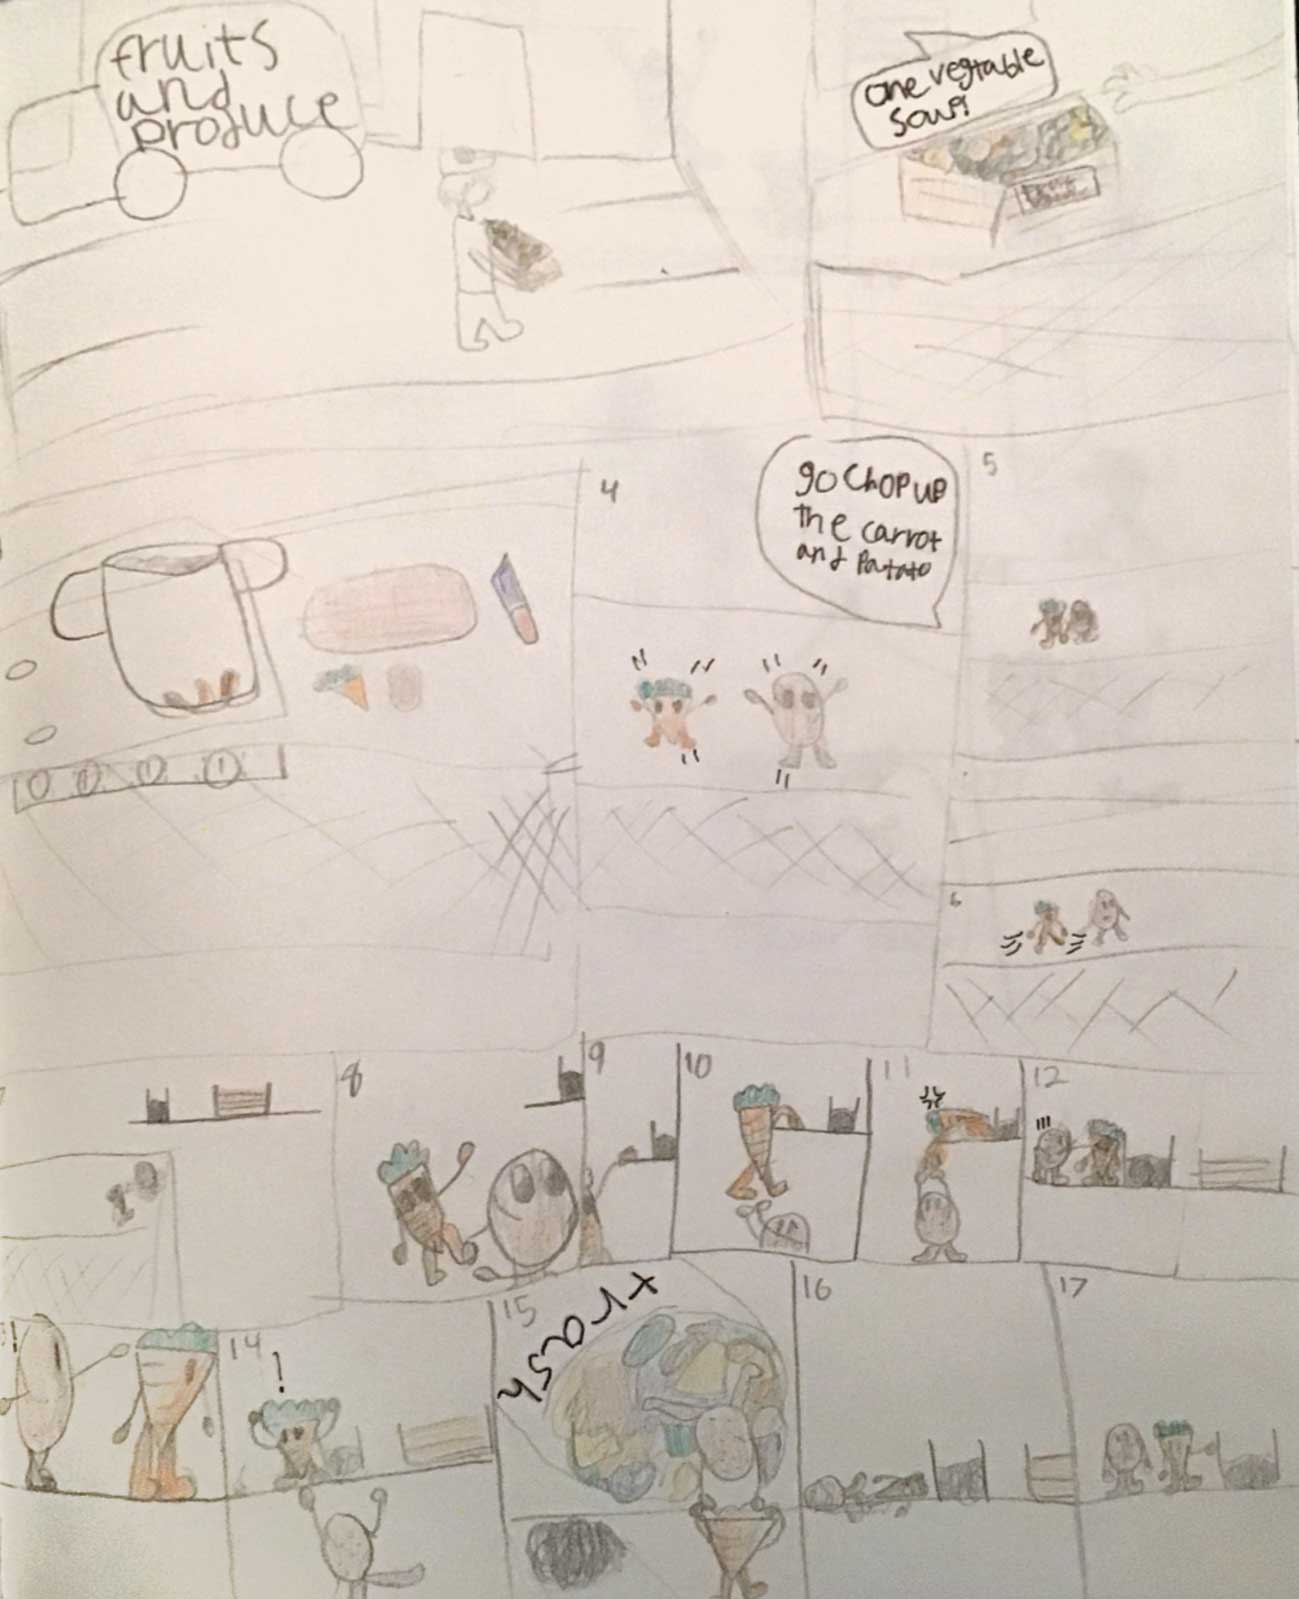 fruits
and
produce
one vegtable
soup!
4
go Chop up
the carrot
and Patato
5
6
8
9
10
11
!!!
12
14
!
15
trash
16
17